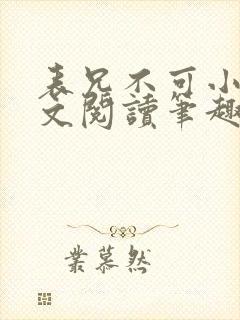 表兄不可小
文閱讀筆趣
葉慕然